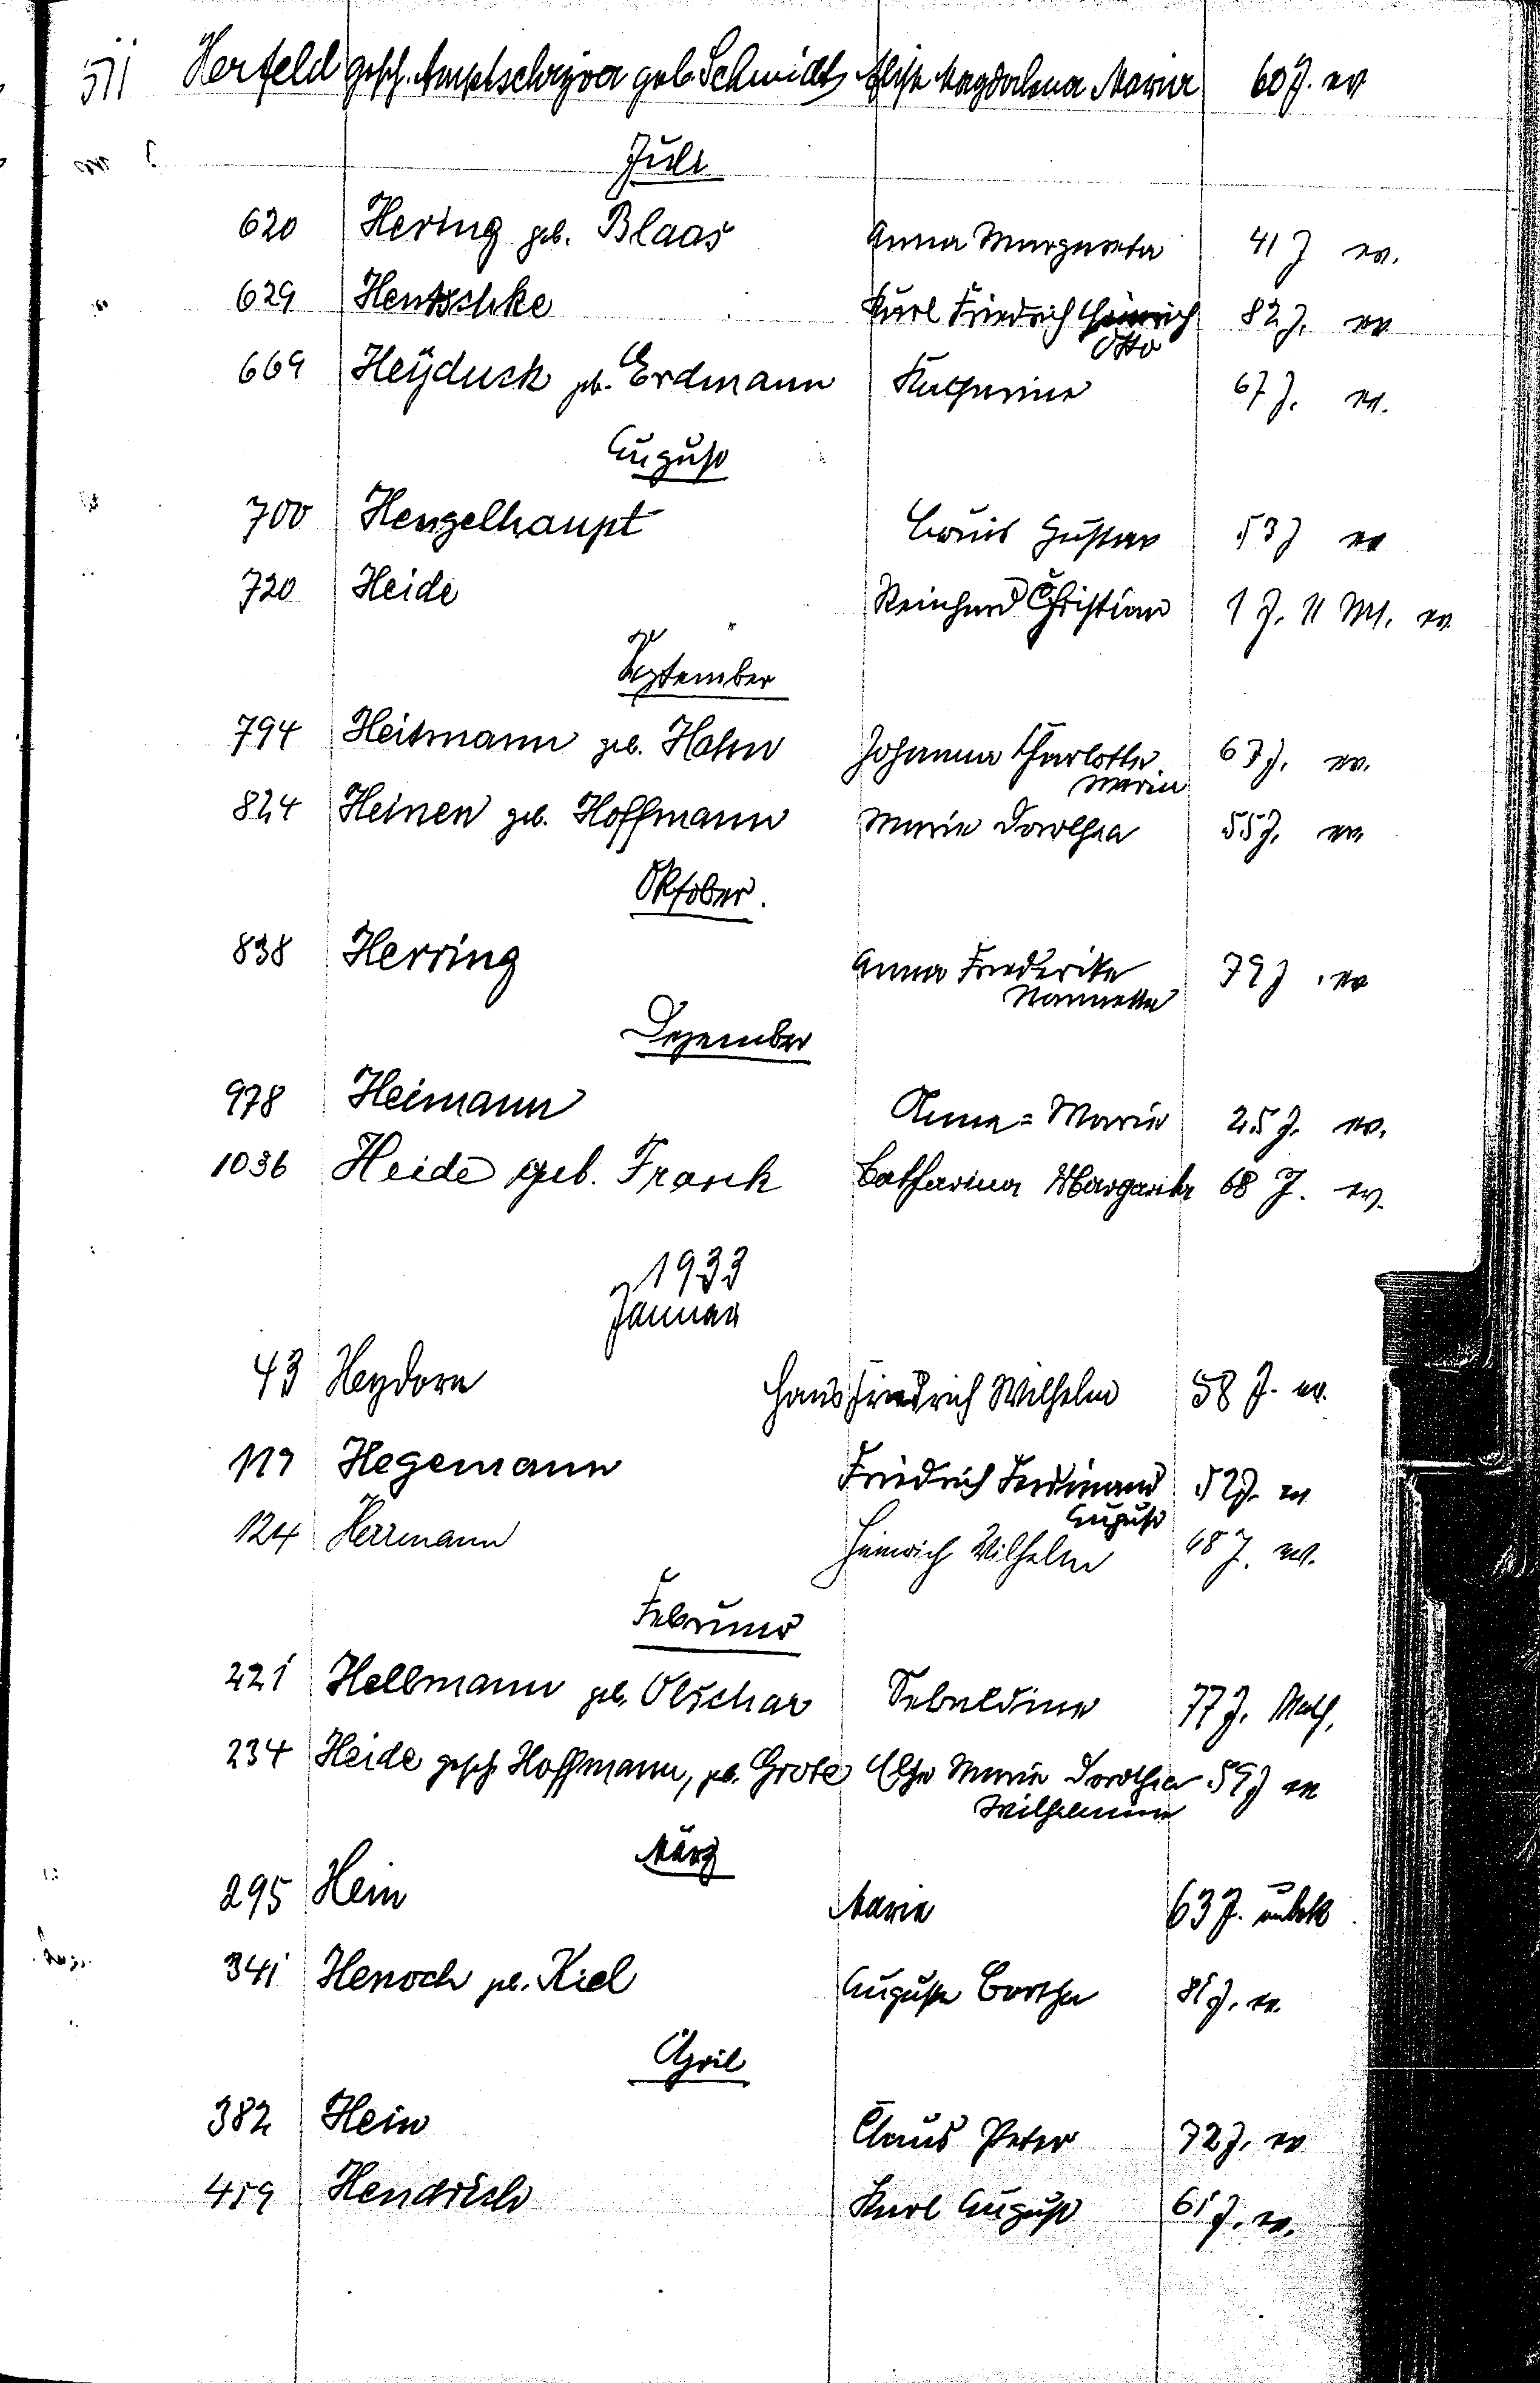 511 Herfeld gesch. geb. Schmidt, Magdalena Maria 60 J. ev
Juli
620 Hering geb. Blaas Anna Margareta 41 J ev.
629 Hentschke Karl Friedrich Heinrich 82 J. ev
Otto
669 Heÿduck geb. Erdmann Katharine 67 J. ev.
August
700 Hengelhaupt Louis Gustav 53 J ev
720 Heide Reinhard Christian 1 J. 11 M. ev
September
794 Heitmann geb. Hahn Johanna Charlotte 67 J. ev.
Maria
824 Heinen geb. Hoffmann Marie Dorothea 55 J. ev.
Oktober.
838 Herring Anna Friederike 79 J. ev
Nannette
Dezember
978 Heimann Anna-Marie 25 J. ev.
1036 Heide geb. Frank Catharina Margaretha 68 J. ev.
1933
Januar
43 Heydorn Hans Friedrich Wilhelm 58 J. ev.
119 Hegemann Friedrich Ferdinand 52 J. ev
August
124 Herrmann Heinrich Wilhelm 68 J. ev.
Februar
221 Hellmann geb. Olschar Sebaldine 77 J.
234 Heide gesch. Hoffmann, geb. Grote Else Marie Dorothea 59 J ev
Wilhelmine
März
295 Hein Maria 63 J. unbek
341 Henoch geb. Kiel Auguste Bertha 81 J. ev.
April
382 Hein Claus Peter 72 J. ev
459 Hendrich Karl August 61 J. ev.